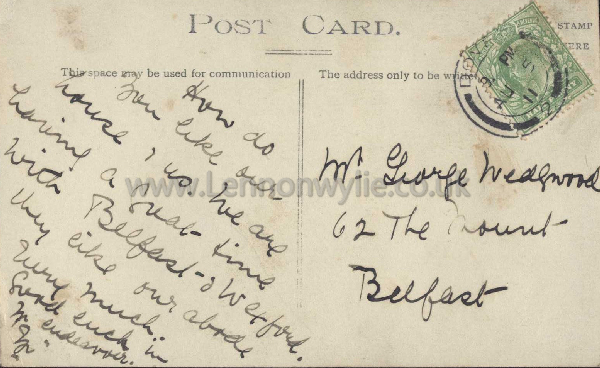 POST CARD.
STAMP
HERE
This space may be used for communication
The address only to be writte
How do
You like our
house & us. We are
having a great time
with Belfast & Wexford.
they like our abode
Very much.
Good luck in
endeavor.
www.Lennonwylie.co.uk
Mr. George Wedgwood
62 The Mount
Belfast